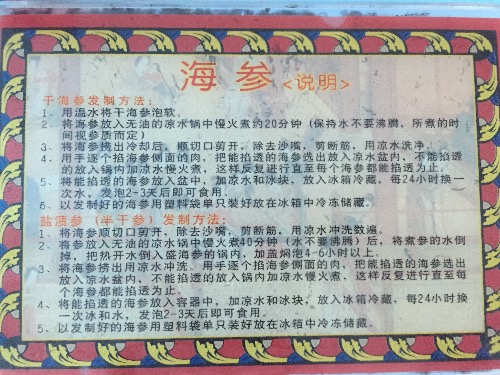 海参<说明>
干海参发制方法：
1、用温水将干海参泡软。
2、将海参放入无油的凉水锅中慢火煮约20分钟（保持水不要沸腾，所煮的时
间视参质而定）
3、将海参捞出冷却后，顺切口剪开，除去沙嘴，剪断筋，用凉水洗净。
4、用手逐个掐海参侧面的肉，把能掐透的海参选出放入凉水盆内，不能掐透
的放入锅内加凉水慢火煮，这样反复进行直至每个海参都能掐透为止。
5、将能掐透的海参放入盆中，加凉水和冰块，放入冰箱冷藏，每24小时换一
次水，发泡2-3天后即可食用。
6、以发制好的海参用塑料袋单只装好放在冰箱中冷冻储藏。
盐渍参（半干参）发制方法：
1、将海参顺切口剪开，除去沙嘴，剪断筋，用凉水冲洗数遍。
2、将参放入无油的凉水锅中慢火煮40分钟（水不要沸腾）后，将煮参的水倒
掉，把热开水倒入盛海参的锅内，加盖焖泡4-6小时以上。
3、将海参捞出用凉水冲洗。用手逐个掐海参侧面的肉，把能掐透的海参选出
放入凉水盆内，不能掐透的放入锅内加凉水慢火煮，这样反复进行直至每
个海参都能掐透为止。
4、将能掐透的海参放入容器中，加凉水和冰块，放入冰箱冷藏，每24小时换
一次冰和水，发泡2-3天后即可食用。
5、以发制好的海参用塑料袋单只装好放在冰箱中冷冻储藏。